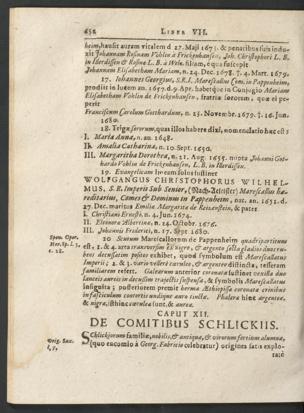 652 LIBER VII.
heim, hausit auram vitalem d. 27. Maji 1673. & penatibus suis indu-
xit Johannam Rosinam Vohlin à Frickenhausen, Joh. Christophori L. B.
in Illerdissen & Rosinæ L. B. à Welsfiliam, equa suscepit
Johannam Elisabetham Mariam, n. 24. Dec. 1678. †. 4. Mart. 1679.
17. Johannes Georgius, S.R.I. Marescallus Com. in Pappenheim,
prodiit in lucem an. 1657. d. 9. Apr. habetque in Conjugio Mariam
Elisabetham Vohlin de Frickenhausen, fratria sororem, quæ ei pe-
perit
Franciscum Carolum Gotthardum, n. 23. Novembr. 1679. †. 16. Jun.
1680.
18. Trigæ sororum, quas illos habere dixi, nomendatio hæc est:
I. Maria Anna, n. an. 1648.
II. Amalia Catharina, n. 10. Sept. 1650.
III. Margaritha Dorothea, n. 21. Aug. 1655. nupta Johanni Got-
hardo Vohlin de Frickenhausen, L. B. in Illerdissen.
19. Evangelicam lineam solus sustinet
WOLFGANGUS CHRISTOPHORUS WILHEL-
MUS, S. R. Imperii Sub Senior, (Nach-Aeltister) Marescallus hæ-
reditarius, Comes & Dominus in Pappenheim, nat. an. 1651. d.
27. Dec. maritus Emiliæ Margaritæ de Reinenstein, & pater
I. Christiani Ernesti, n. 4. Jun. 1674.
II. Eleonoræ Albertinæ, n. 24. Octobr. 1676.
III. Johannis Friderici, n. 17. Sept. 1680.
Spen. Oper.
Her. Sp. l. 1,
c. 28.
20. Scutum Mariscallorum de Pappenheim quadripartitum
est, 1. & 4. area transversim ex nigro, & argento secta gladios duos ru-
beos decussatim positos exhibet, quod symbolum est Marescallatus
Imperii; 2. & 3. vario vellere cæruleo, & argento distincta, tesseram
familiarem refert. Galearum anterior coronata sustinet vexilla duo
lanceis aureis in decussim trajectis suspensa, & symbolis Marescallatus
insignita; posteriorem premit herma Æthiopissa coronata crinibus
in fasciculum contortis undique auro stillis. Phaleræ hinc argenteæ,
& nigræ, isthinc cæruleæ sunt, & aureæ.
CAPUT XII.
DE COMITIBUS SCHLICKIIS.
Orig. Sax.
l. 7,
Schlickiorum familiæ, nobilis, & antiquæ, & virorum fortium alumnæ,
(quo encomio à Georg. Fabricio celebratur) origines satis explo-
ratæ